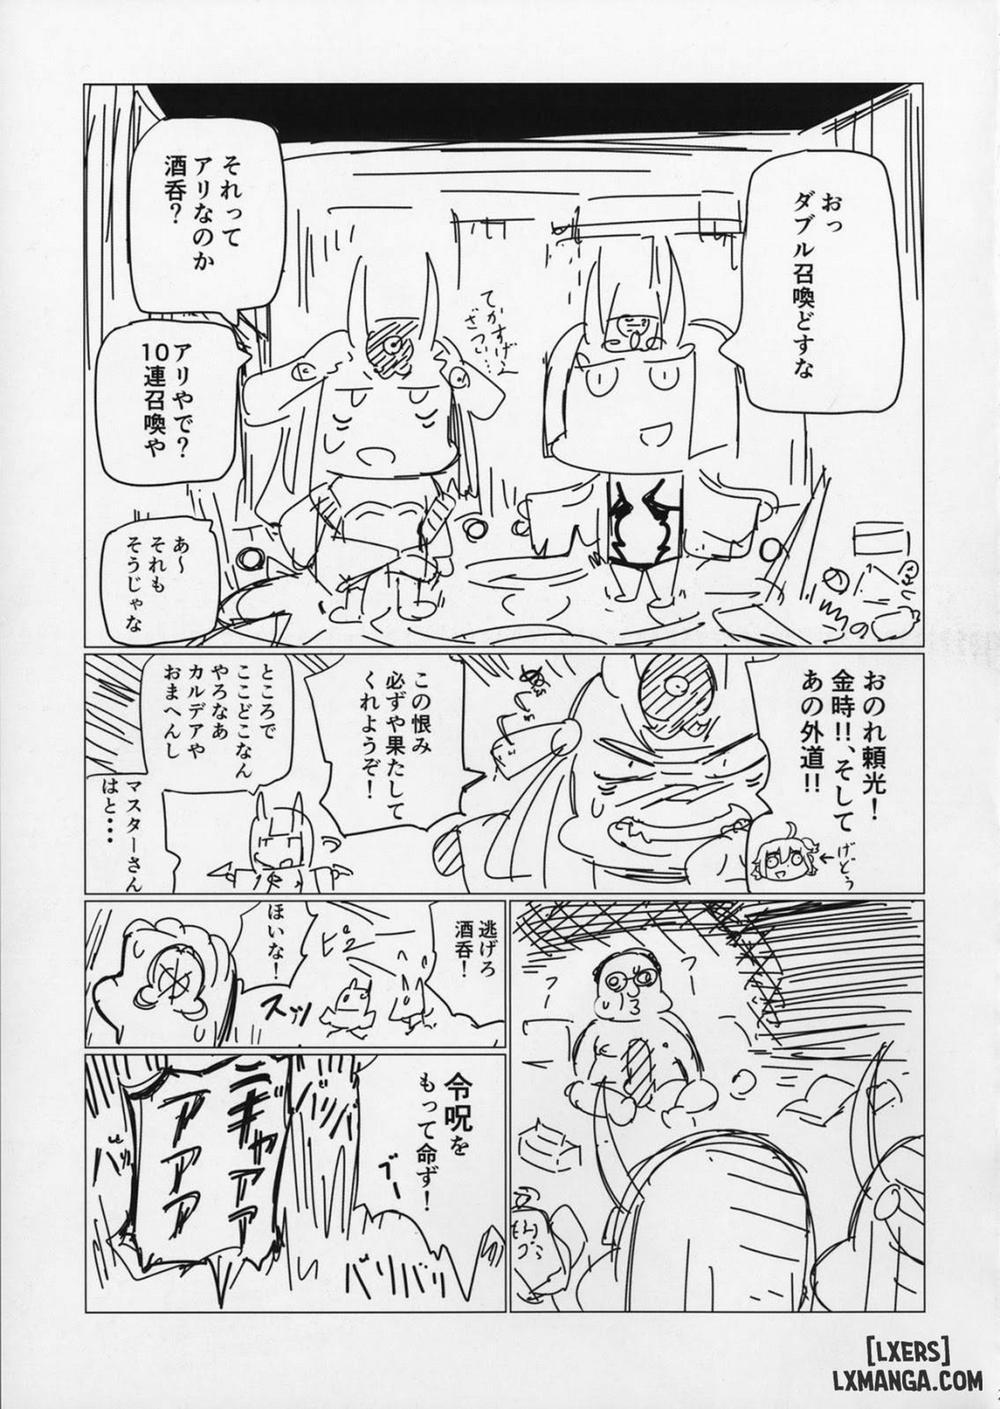 おっ
ダブル召喚どすな
それって
アリなのか
酒呑?
アリやで?
10連召喚や
あ〜
それも
そうじゃな
おのれ頼光!
金時!!、そして
あの外道!!
げどう
この恨み
必ずや果たして
くれようぞ!
ところで
ここどこなん
やろなあ
カルデアや
おまへんし
マスターさん
はと・・・
フー
フー
逃げろ
酒呑!
ほいな!
スッ
令呪を
もって命ず!
ブー
ニギャアア
アアアア
バリバリ
[LXERS]
LXMANGA.COM